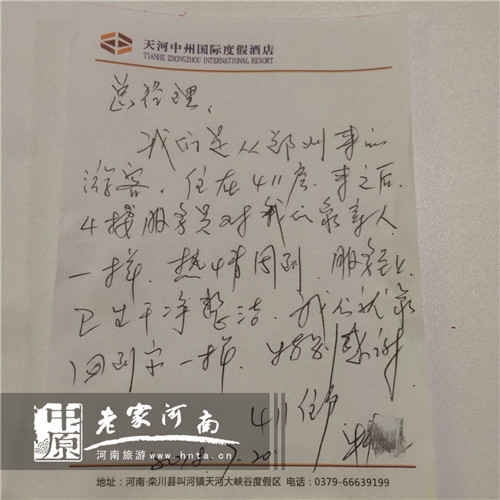 天河中州国际度假酒店
TIANHE ZHONGZHOU INTERNATIONAL RESORT
总经理、
我们是从郑州来的
游客,住在411房.来之后.
4楼服务员对我们象亲人
一样,热情周到.服务
卫生干净整洁.我们就象
回到家一样.特别感谢.
411住户
2018.7.20
中原
老家河南
河南旅游 www.hnta.cn
地址:河南·栾川县叫河镇天河大峡谷度假区 电话:0379-66639199